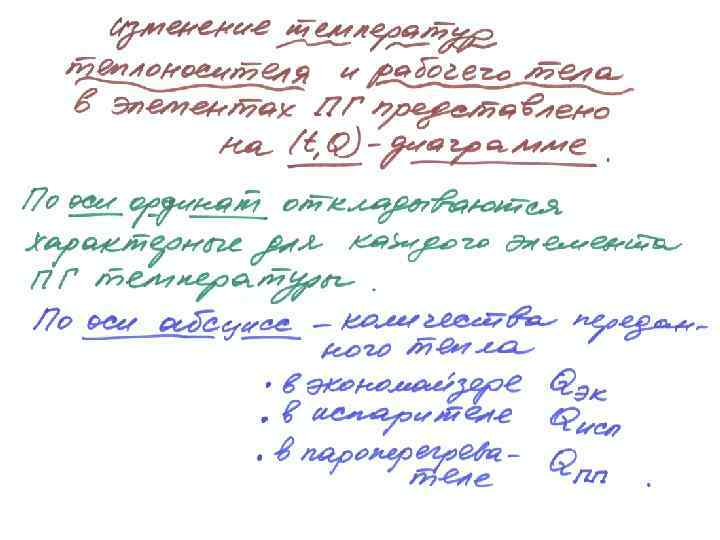 изменение температур
теплоносителя и рабочего тела
в элементах ПГ представлено
на (t,Q)-диаграмме.
По оси ординат откладываются
характерные для каждого элемента
ПГ температуры.
По оси абсцисс – количества передан-
ного тепла
• в экономайзере Qэк
• в испарителе Qисп
• в пароперегрева-
теле Qпп.